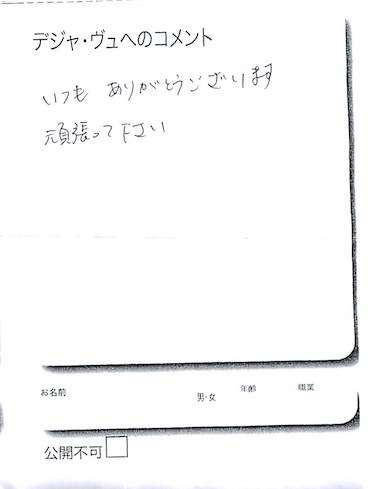 デジャ・ヴュへのコメント
いつも ありがとうございます
頑張って下さい
お名前
男・女
年齢
職業
公開不可